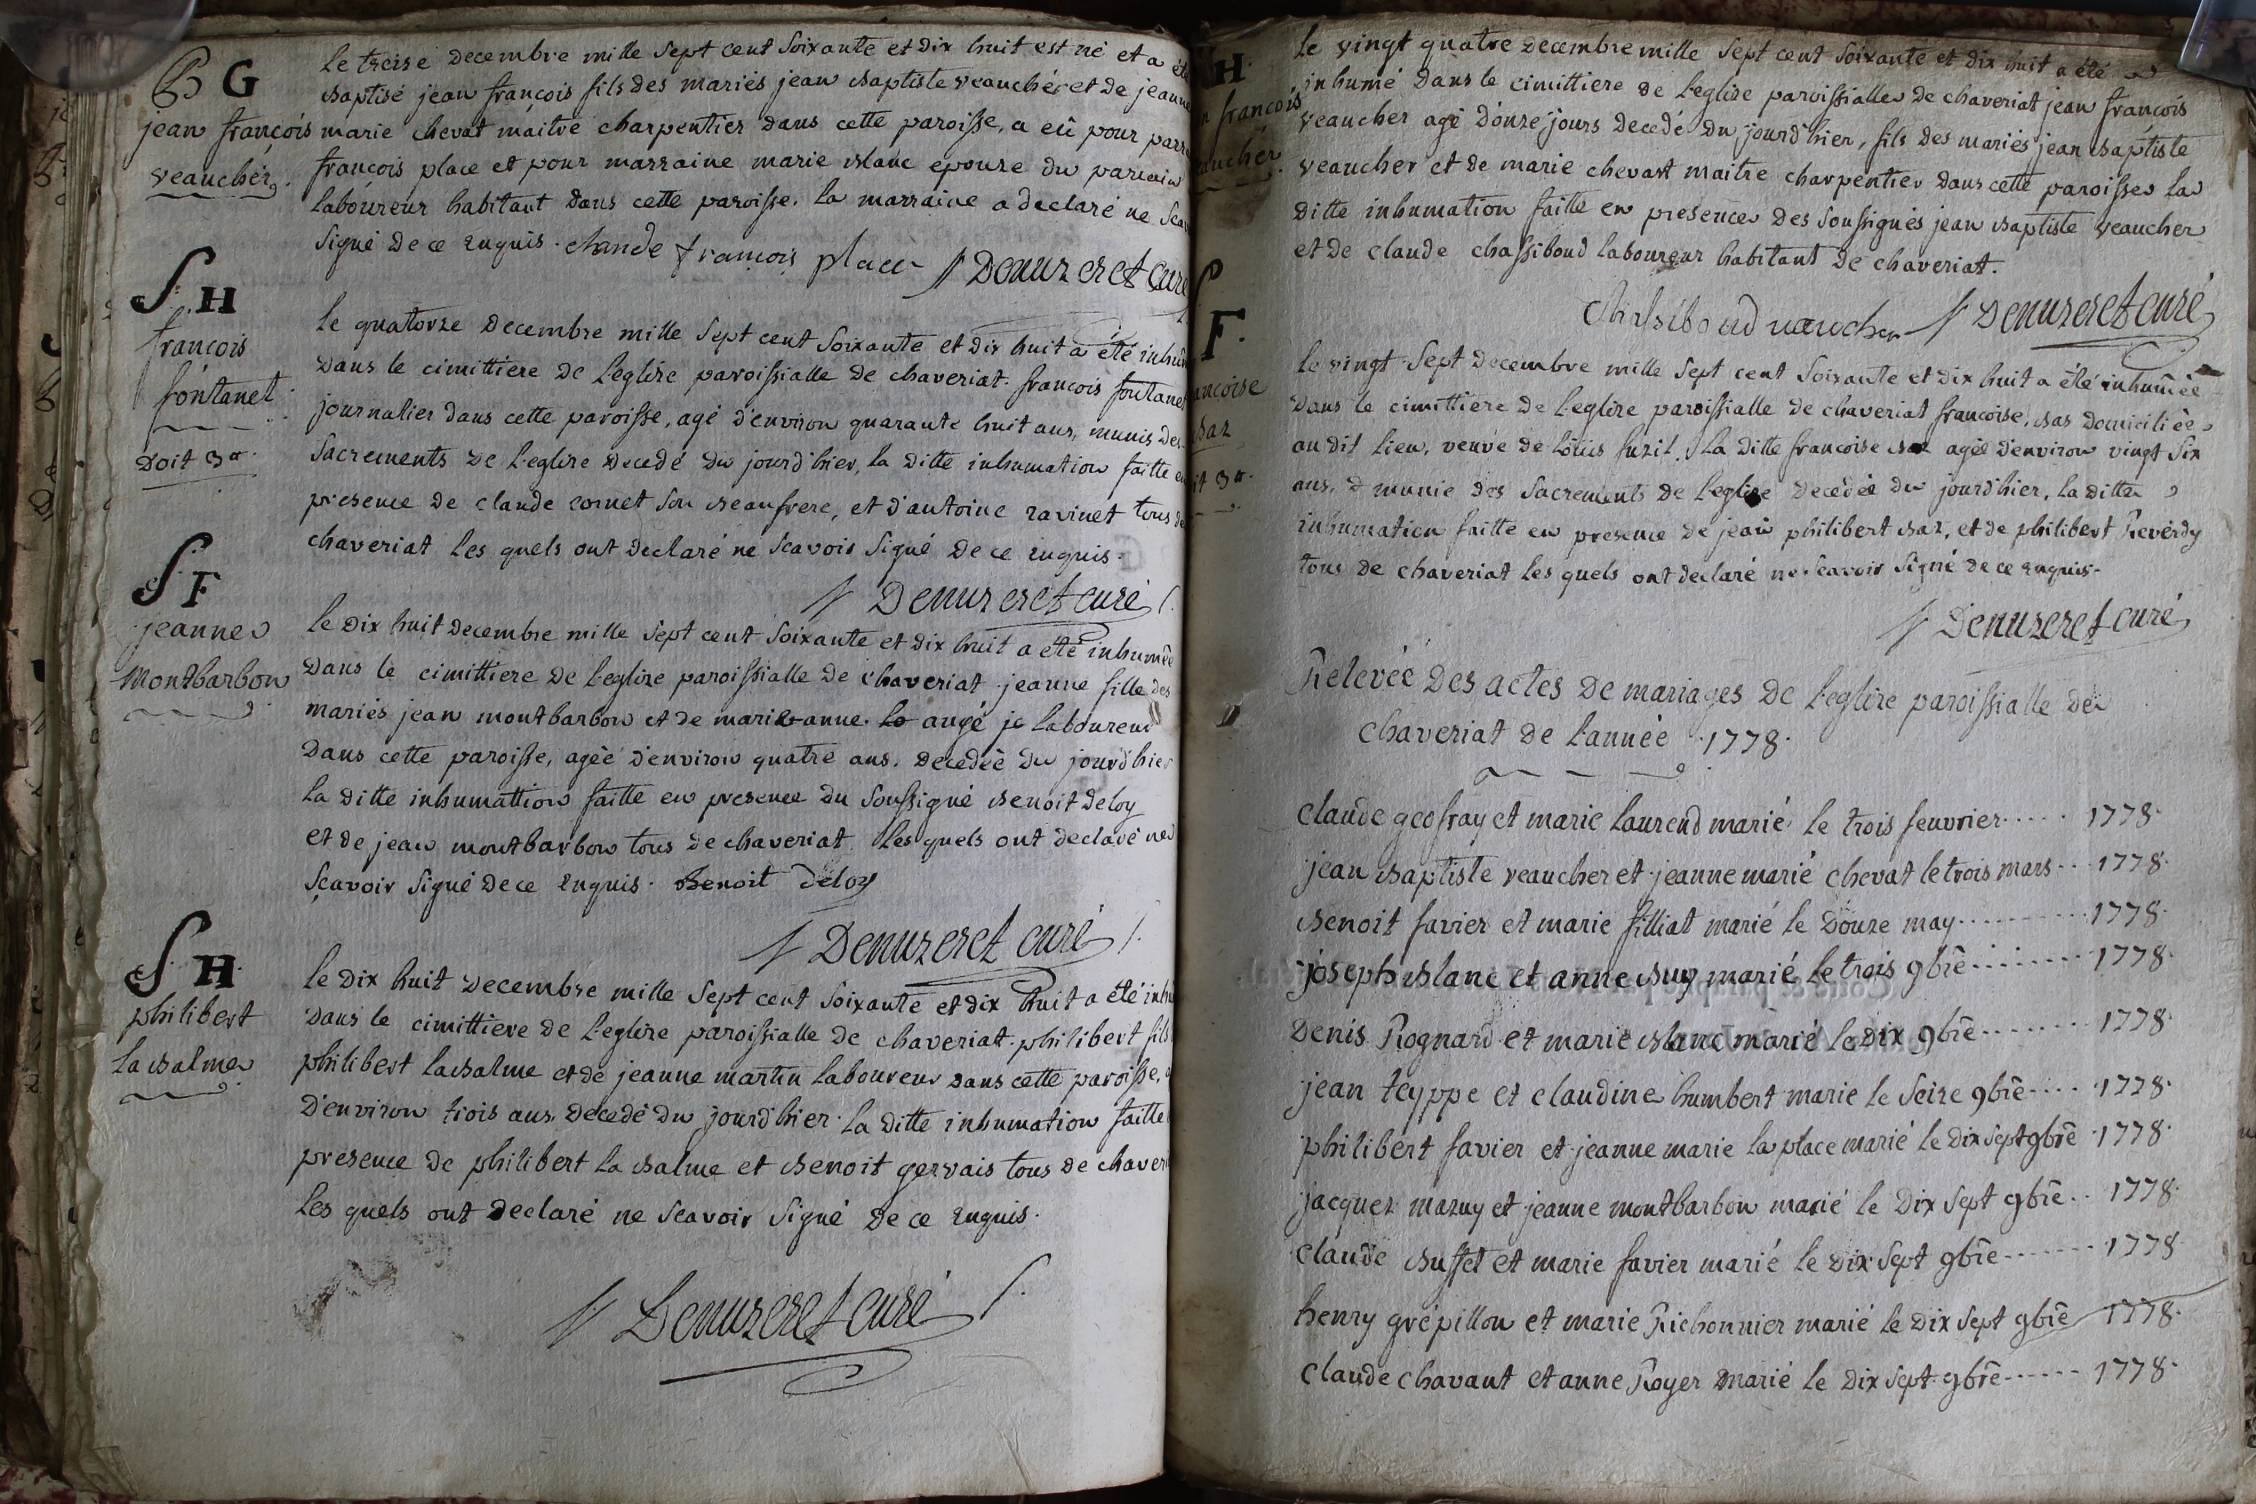 B G
jean françois
veaucher
le treize decembre mille sept cent soixante et dix huit est né et a été
baptisé jean françois fils des mariés jean baptiste veaucher et de jeanne
marie chevat maitre charpentier dans cette paroisse, a eû pour parr
françois place et pour marraine marie blanc epouze du parrain
laboureur habitant dans cette paroisse. la marraine a declaré ne scav
signé de ce enquis. françois place Denuzeret curé
S. H
françois
fontanet
doit 3 ll.
le quatorze decembre mille sept cent soixante et dix huit a été inhum
dans le cimittiere de l'eglize paroissialle de chaveriat françois fontanet
journalier dans cette paroisse, agé d'environ quarante huit ans, munis des
sacrements de l'eglize decedé du jourd'hier, la ditte inhumation faitte en
presence de claude cornet son beaufrere, et d'antoine ravinet tous de
chaveriat les quels ont declaré ne scavoir signé de ce enquis.
Denuzeret curé
S. F
jeanne
Montbarbon
le dix huit decembre mille sept cent soixante et dix huit a été inhumée
dans le cimittiere de l'eglize paroissialle de chaveriat jeanne fille des
mariés jean montbarbon et de marie anne augé laboureur
dans cette paroisse, agée d'environ quatre ans. decedée du jourd'hier
la ditte inhumattion faitte en presence du soussigné benoit deloy
et de jean montbarbon tous de chaveriat les quels ont declaré ne
scavoir signé de ce enquis. Benoit deloy
Denuzeret curé
S. H.
philibert
la balme
le dix huit decembre mille sept cent soixante et dix huit a été inhu
dans le cimittiere de l'eglize paroissialle de chaveriat philibert fils
philibert labalme et de jeanne martin laboureur dans cette paroisse, a
d'environ trois ans. decedé du jourd'hier la ditte inhumation faitte
presence de philibert la balme et benoit gervais tous de chaver
les quels ont declaré ne scavoir signé de ce enquis.
Denuzeret curé
H.
n françois
aucher
le vingt quatre decembre mille sept cent soixante et dix huit a été
inhumé dans le cimittiere de l'eglize paroissialle de chaveriat jean françois
veaucher agé d'onze jours decedé du jourd'hier, fils des mariés jean baptiste
veaucher et de marie chevart maitre charpentier dans cette paroisse la
ditte inhumation faitte en presence des soussignés jean baptiste veaucher
et de claude chassiboud laboureur habitant de chaveriat.
Chassiboud vaucher Denuzeret curé
S
F.
ancoise
baz
it 3 ll.
le vingt sept decembre mille sept cent soixante et dix huit a été inhumée
dans le cimittiere de l'eglize paroissialle de chaveriat francoise, bas domiciliée
au dit lieu, veuve de loüis fuzil. la ditte francoise baz agée d'environ vingt six
ans, & munie des sacrements de l'eglize decedée du jourd'hier, la ditte
inhumation faitte en presence de jean philibert baz, et de philibert Reverdy
tous de chaveriat les quels ont declaré ne scavoir signé de ce enquis.
Denuzeret curé
Relevée des actes de mariages de l'eglize paroissialle de
chaveriat de l'année 1778.
claude geofray et marie laurend marié le trois feuvrier..... 1778.
jean baptiste veaucher et jeanne marie chevat le trois mars... 1778.
benoit favier et marie filliat marié le douze may.......... 1778.
joseph blanc et anne buy marié le trois 9bre........ 1778.
Denis Rognard et marie blanc marié le dix 9bre........ 1778.
jean teyppe et claudine humbert marie le seize 9bre.... 1778.
philibert favier et jeanne marie la place marié le dix sept 9bre 1778.
jacques mazuy et jeanne montbarbon marié le dix sept 9bre.. 1778.
claude buffet et marie favier marié le dix sept 9bre....... 1778
henry grépillon et marie Richonnier marié le dix sept 9bre 1778.
claude chavant et anne Royer marié le dix sept 9bre...... 1778.